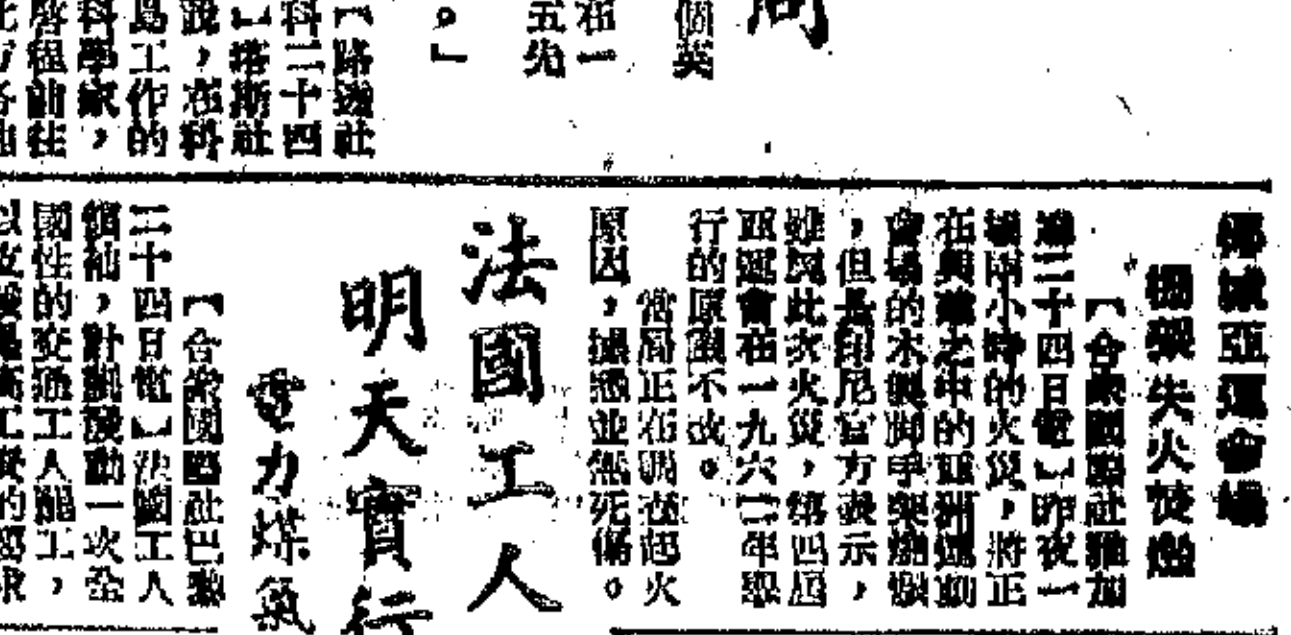 個英
在一
五先
。」
【路透社
科二十四
】塔斯社
說,在科
島工作的
科學家,
啓程前往
亞運會場
棚架失火焚燬
【合衆國際社雅加
達二十四日電】昨夜一
場兩小時的火災,將正
在興建之中的亞洲運動
會場的木製脚手架燒燬
,但是印尼官方表示,
雖然此次火災,第四屆
亞運會在一九六二年舉
行的原則不改。
當局正在調查起火
原因,據悉並無死傷。
法國工人
明天實行
電力煤氣
【合衆國際社巴黎
二十四日電】法國工人
領袖,計劃發動一次全
國性的交通工人罷工,